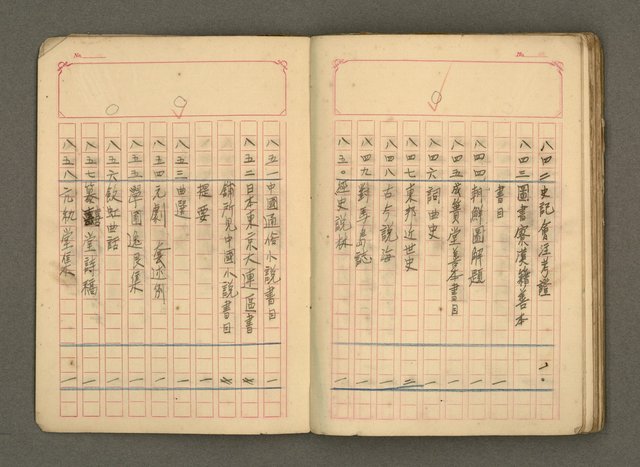 No.
八四二史記會注考證 一〇
八四三圖書寮漢籍善本
書目 一
八四四朝鮮圖解題 一
八四五成簣堂善本書目 一
八四六詞曲史 一
八四七東邦近世史 二
八四八古今說海 一
八四九對馬島誌 一
八五〇逕史說林 一
No.
八五一中國通俗小說書目 一
八五二日本東京大連一區書
舘所見中國小說書目
提要 一
八五三曲選 一
八五四元劇 述例 一
八五五 園逸民集 一
八五六飲虹曲話 一
八五七纂 堂詩稿 一
八五八元 堂集 一